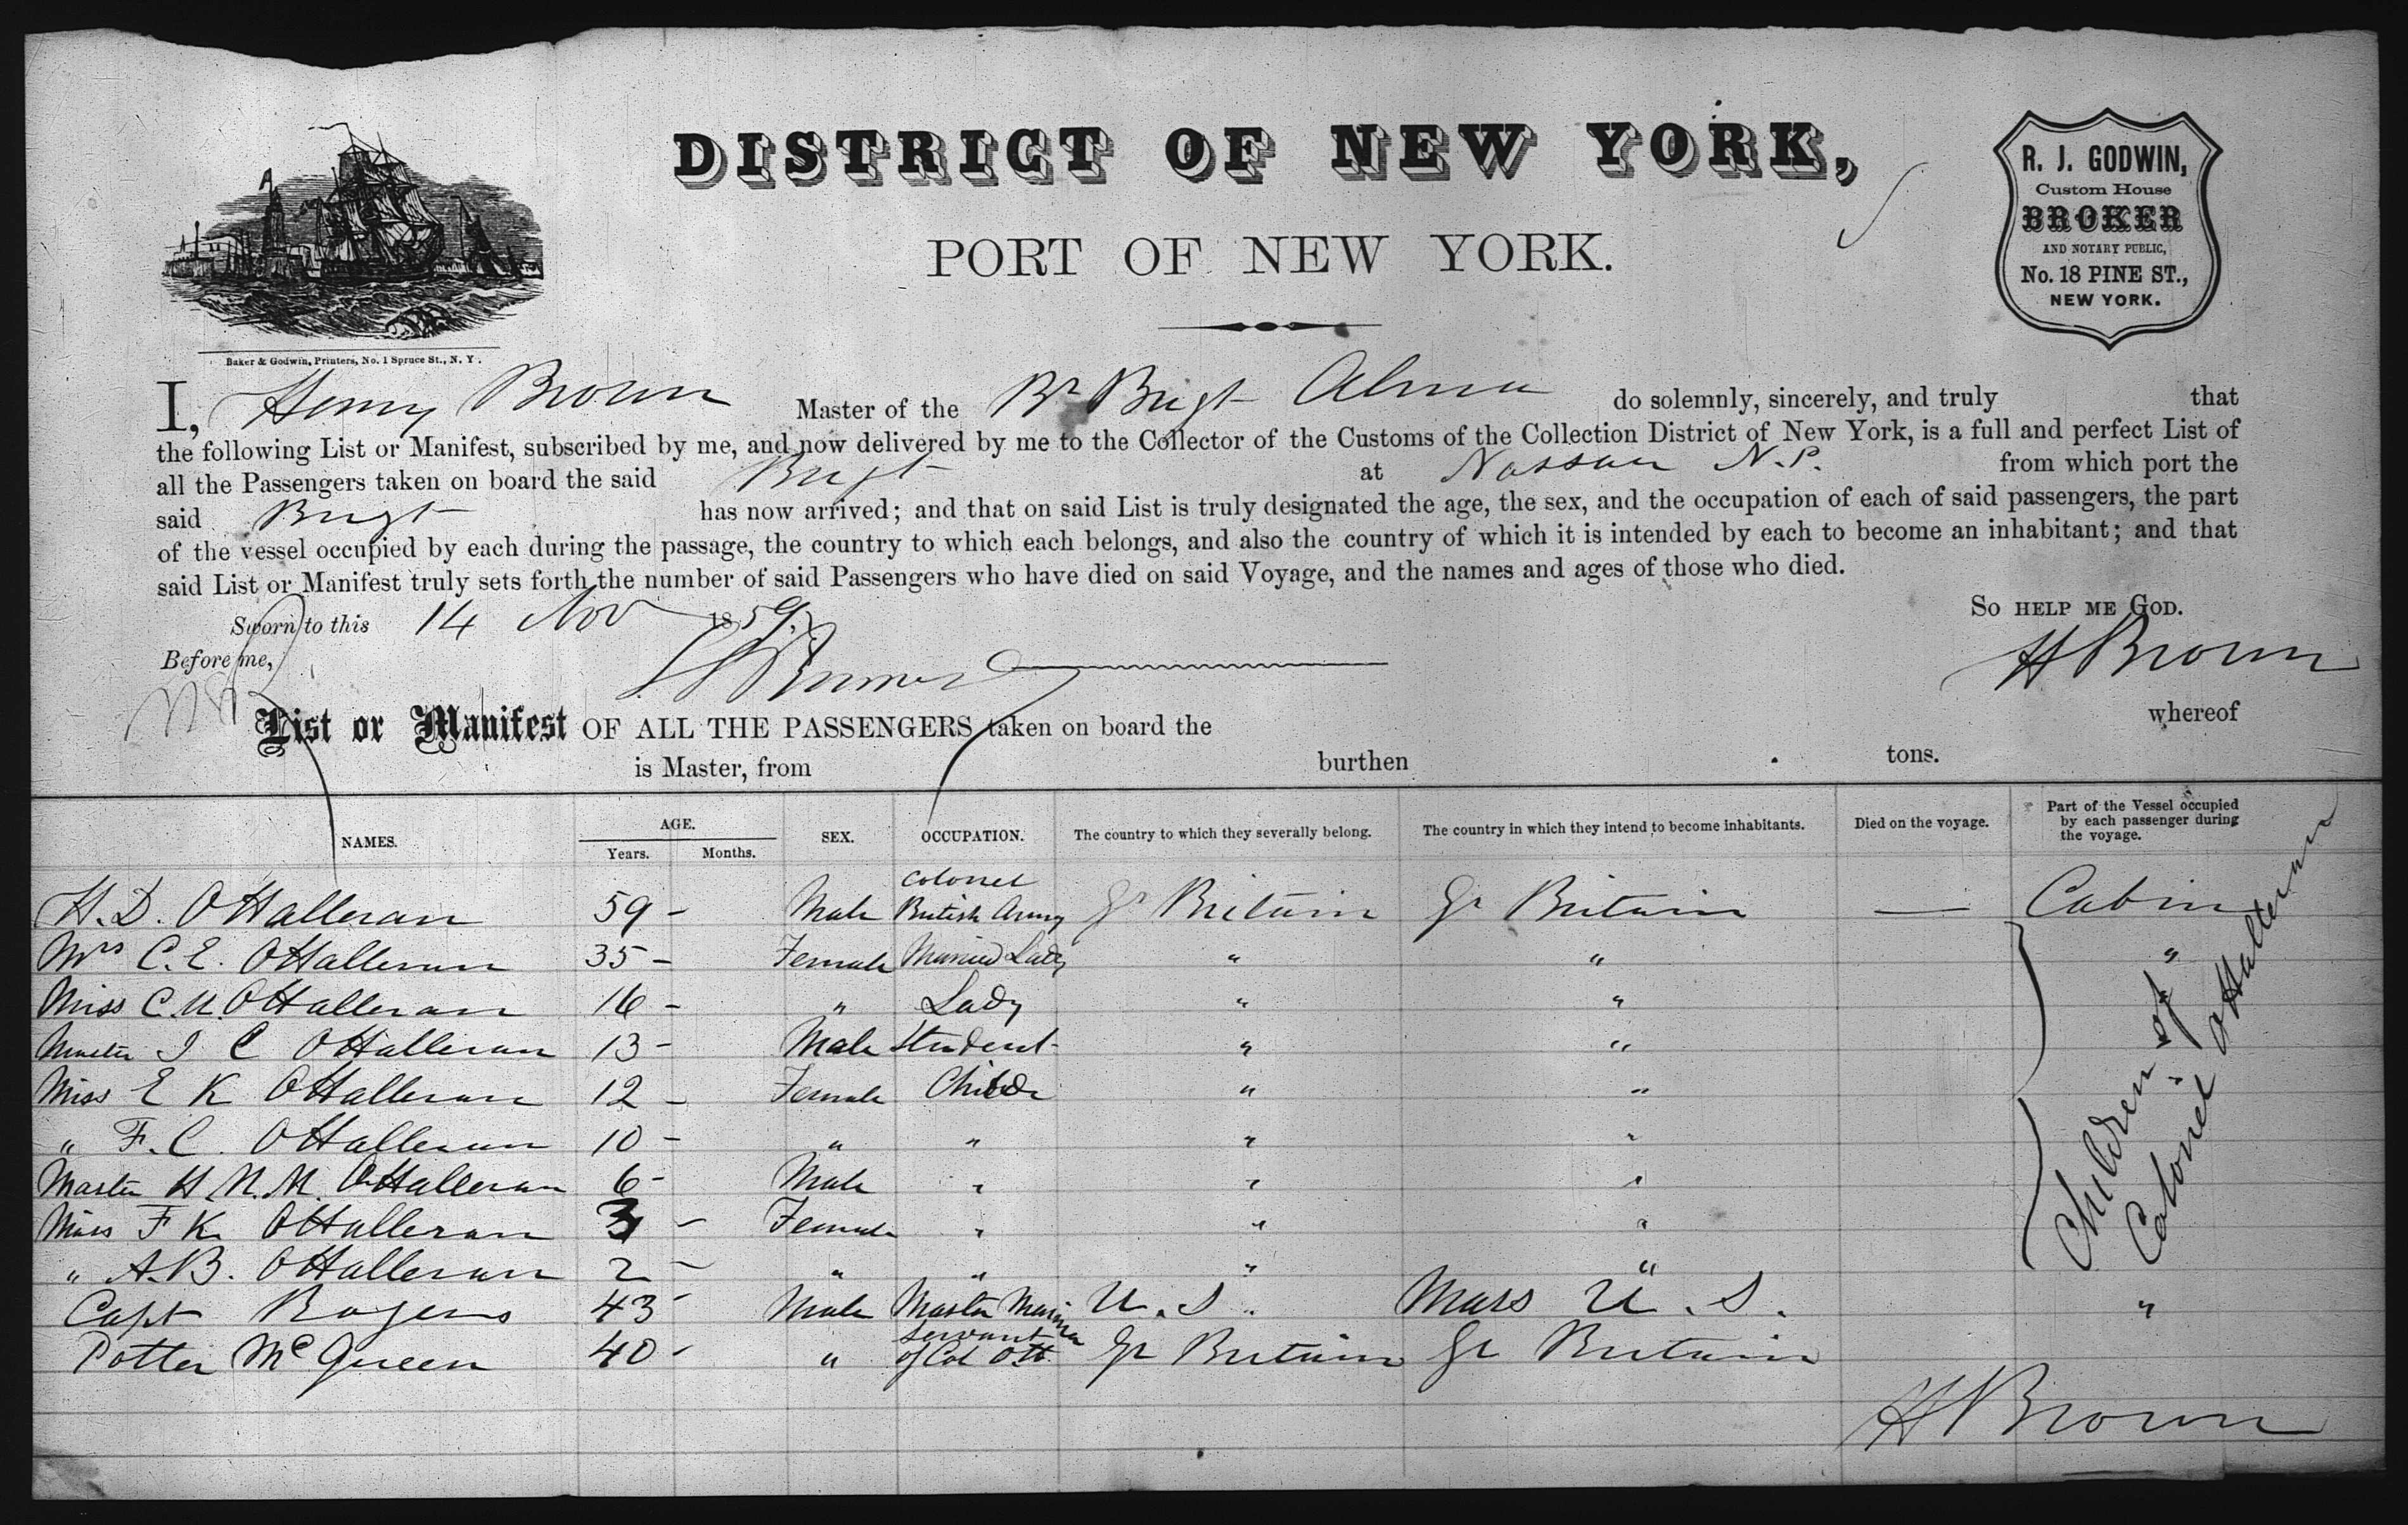 DISTRICT OF NEW YORK,
PORT OF NEW YORK.
R. J. GODWIN,
Custom House
BROKER
AND NOTARY PUBLIC,
No. 18 PINE ST.,
NEW YORK.
Baker & Godwin, Printers, No. 1 Spruce St., N. Y.
I, Henry Brown Master of the Br Brigt Alma do solemnly, sincerely, and truly that
the following List or Manifest, subscribed by me, and now delivered by me to the Collector of the Customs of the Collection District of New York, is a full and perfect List of
all the Passengers taken on board the said Brigt at Nassau N.P. from which port the
said Brigt has now arrived; and that on said List is truly designated the age, the sex, and the occupation of each of said passengers, the part
of the vessel occupied by each during the passage, the country to which each belongs, and also the country of which it is intended by each to become an inhabitant; and that
said List or Manifest truly sets forth the number of said Passengers who have died on said Voyage, and the names and ages of those who died.
Sworn to this 14 Nov 1859. So HELP ME GOD.
Before me, H Brown
List or Manifest OF ALL THE PASSENGERS taken on board the whereof
is Master, from burthen tons.
NAMES. AGE. Years. Months. SEX. OCCUPATION. The country to which they severally belong. The country in which they intend to become inhabitants. Died on the voyage. Part of the Vessel occupied by each passenger during the voyage.
H. D. OHalleran 59 - Male Colonel British Army Gr Britain Gr Britain — Cabin
Mrs C. E. OHalleran 35 - Female Married Lady " " "
Miss C. M. OHalleran 16 - " Lady " " "
Master J C OHalleran 13 - Male Student " "
Miss E K OHalleran 12 - Female Child " "
" F. C. OHalleran 10 - " " " "
Master H. N. M. OHalleran 6 - Male " " "
Miss F K OHalleran 3 - Female " " "
" A. B. OHalleran 2 - " " " "
Children of Colonel OHalleran
Capt Rogers 43 - Male Master Mariner U. S. Mass U. S. "
Potter McQueen 40 - " Servant of Col OH. Gr Britain Gr Britain
H Brown